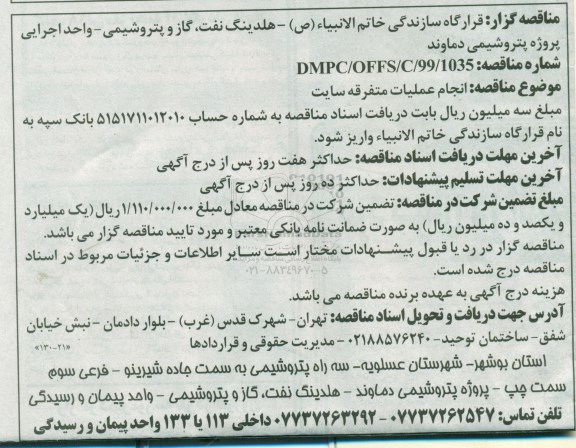 مناقصه گزار: قرارگاه سازندگی خاتم الانبیاء (ص) - هلدینگ نفت، گاز و پتروشیمی - واحد اجرایی
پروژه پتروشیمی دماوند
شماره مناقصه: DMPC/OFFS/C/99/1035
موضوع مناقصه: انجام عملیات متفرقه سایت
مبلغ سه میلیون ریال بابت دریافت اسناد مناقصه به شماره حساب ۵۱۵۱۷۱۱۰۱۲۰۱۰ بانک سپه به
نام قرارگاه سازندگی خاتم الانبیاء واریز شود.
آخرین مهلت دریافت اسناد مناقصه: حداکثر هفت روز پس از درج آگهی
آخرین مهلت تسلیم پیشنهادات: حداکثر ده روز پس از درج آگهی
مبلغ تضمین شرکت در مناقصه: تضمین شرکت در مناقصه معادل مبلغ ۱/۱۱۰/۰۰۰/۰۰۰ ریال (یک میلیارد
و یکصد و ده میلیون ریال) به صورت ضمانت نامه بانکی معتبر و مورد تایید مناقصه گزار می باشد.
مناقصه گزار در رد یا قبول پیشنهادات مختار است سایر اطلاعات و جزئیات مربوط در اسناد
مناقصه درج شده است.
۰۲۱-۸۸۳۴۹۶۷۰-۵
هزینه درج آگهی به عهده برنده مناقصه می باشد.
آدرس جهت دریافت و تحویل اسناد مناقصه: تهران - شهرک قدس (غرب) - بلوار دادمان - نبش خیابان
شفق - ساختمان توحید - ۰۲۱۸۸۵۷۶۲۴۰ - مدیریت حقوقی و قراردادها
«۱۳۰-۲۱»
استان بوشهر - شهرستان عسلویه - سه راه پتروشیمی به سمت جاده شیرینو - فرعی سوم
سمت چپ - پروژه پتروشیمی دماوند - هلدینگ نفت، گاز و پتروشیمی - واحد پیمان و رسیدگی
تلفن تماس: ۰۷۷۳۷۲۶۲۵۴۷ - ۰۷۷۳۷۲۶۳۲۹۲ داخلی ۱۱۳ یا ۱۳۳ واحد پیمان و رسیدگی